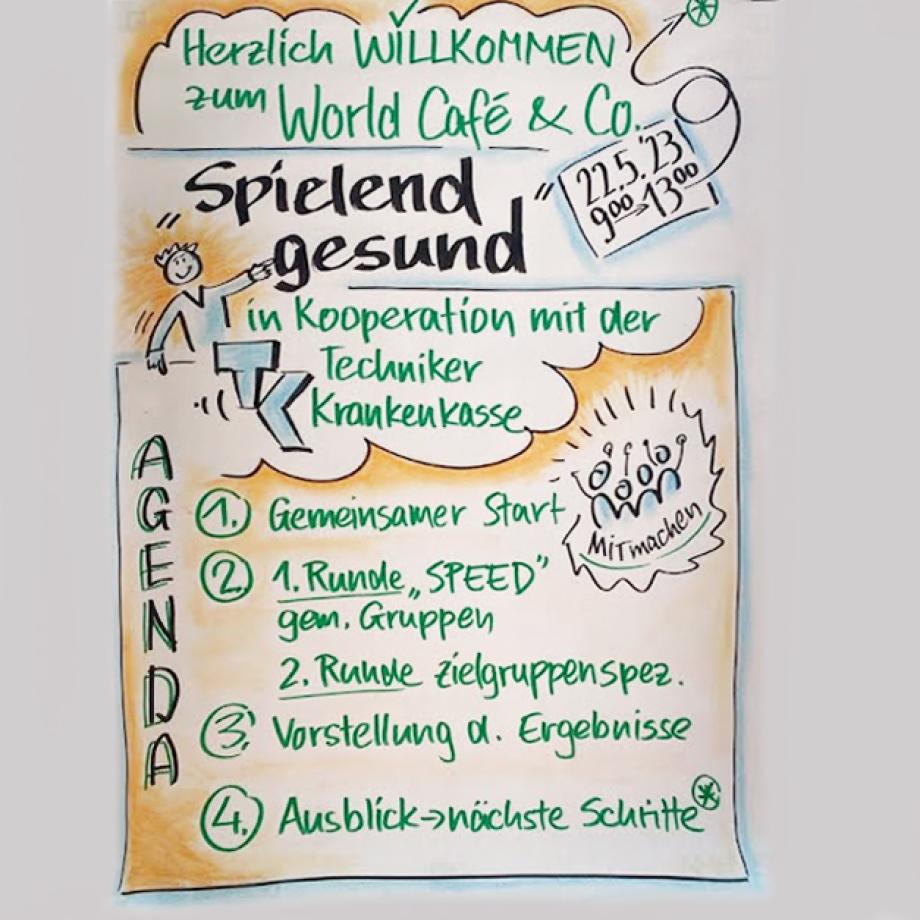 Herzlich WILLKOMMEN
zum World Café & Co.
22.5.'23
9⁰⁰→13⁰⁰
„Spielend
gesund"
in Kooperation mit der
TK Techniker
Krankenkasse
Mitmachen
AGENDA
1. Gemeinsamer Start
2. 1. Runde „SPEED"
gem. Gruppen
2. Runde zielgruppenspez.
3. Vorstellung d. Ergebnisse
4. Ausblick→nächste Schritte*